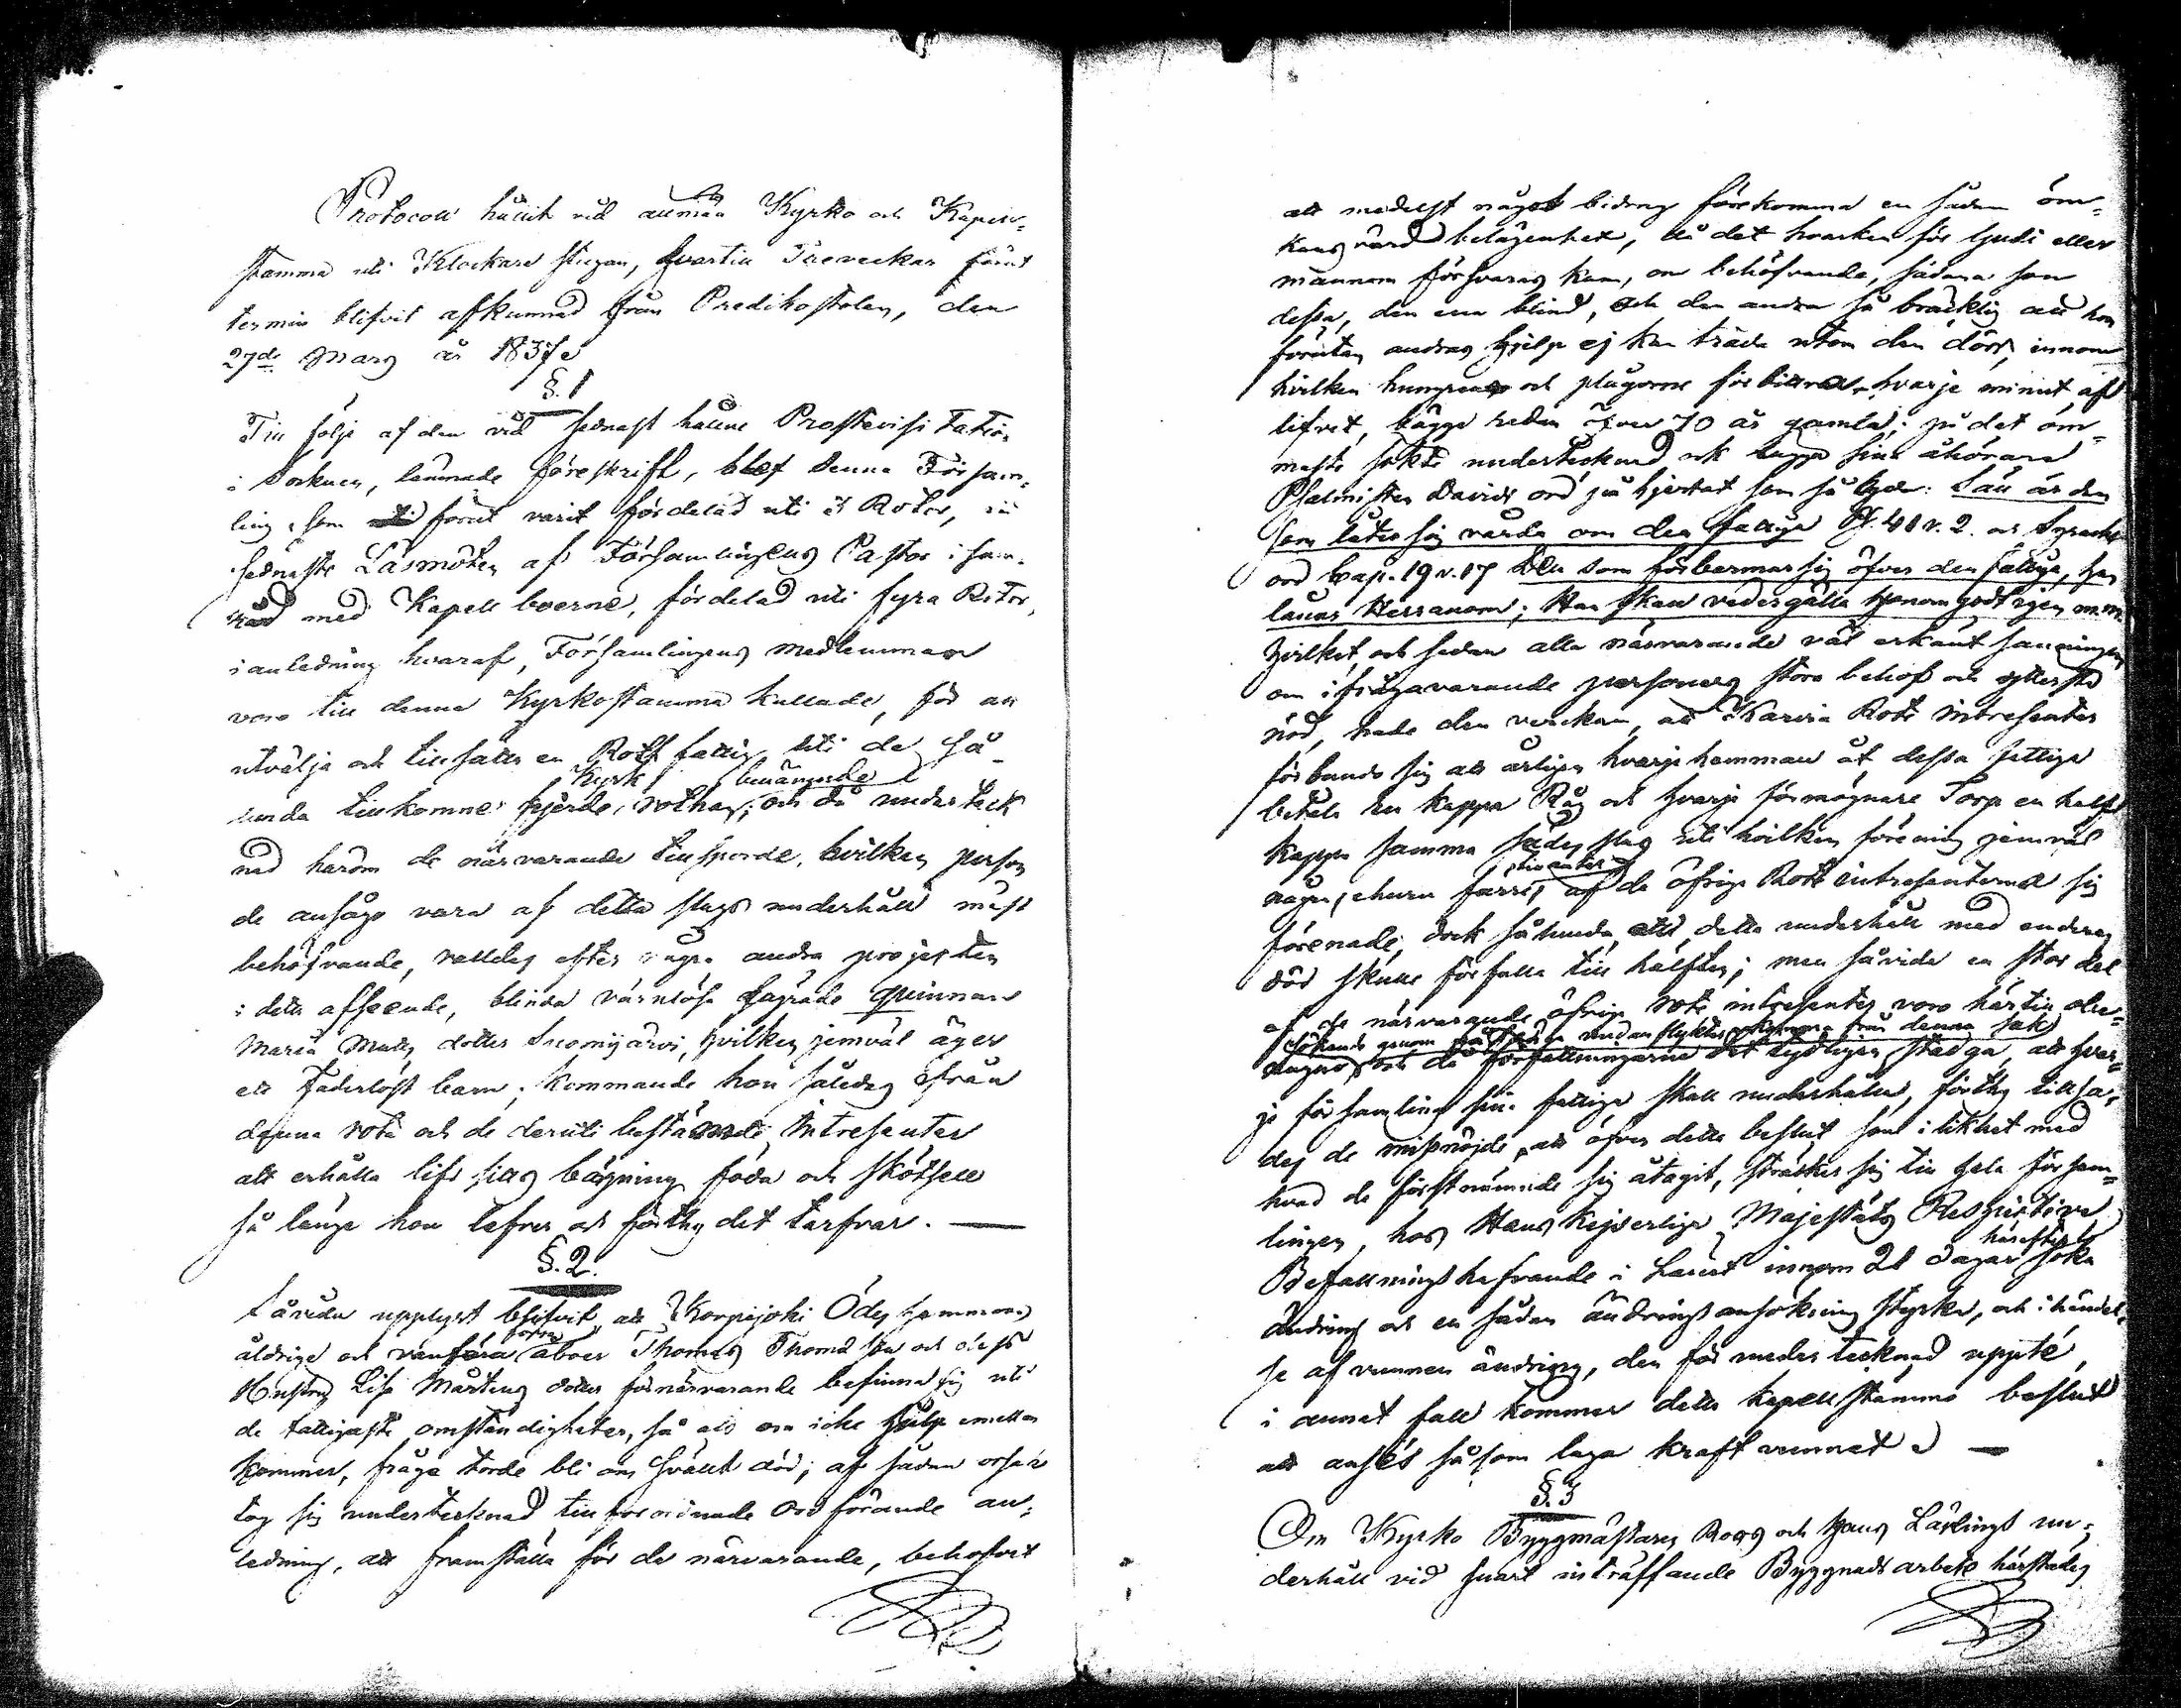 Protocoll hållit vid allmän Kyrko och Kapell-
stämma uti Klockare stugan, hvartill Treveckor förut
termin blifvit afkunnad från Predikostolen, den
27de Mars år 1837.
§. 1
Till följe af den vid sednast hållne Prostevisitation
i Socknen, lämnade föreskrift, blef denna Försam-
ling, som förut varit fördelad uti 3 Rotor, vid
sednaste Läsmöten af Församlingens Pastor i sam-
råd med Kapellboerne, fördelad uti fyra Rotor,
i anledning hvaraf, Församlingens medlemmar
voro till denna Kyrkostämma kallade, för att
utvälja och tillsätta en Rotfattig uti de så-
Kyrk benämde
lunda tillkomne fjerde rothen; och då underteck
nad härom de närvarande tillsporde, hvilken person
de ansågo vara af detta slags underhåll mäst
behöfvande, valdes efter några andra projecten
i detta afseende, blinda värnlösa qvinnan
Maria Matts dotter Suomijärvi, hvilken jemväl äger
ett Faderlöst barn; kommande hon således ifrån
denna rota och de deruti bestående Intresenter
att erhålla lifs sitts bärgning föda och skötsell
så länge hon lefver och förthy det tarfvar. —
§. 2.
Såvida upplyst blifvit, att Korpijoki Ödes hemmans
förra
åldrige och vanföra åboer Thomas Thomasson och dess
Hustru Lisa Mårtens dotter för närvarande befinna sig uti
de fattigaste omständigheter, så att om icke hjelp emellan
kommer, fråga torde bli om svält död; af sådan orsak
tog sig undertecknad tillförordnade Ordförande an-
ledning, att framställa för de närvarande, behofvet
att medelst något bidrag förekomma en sådan öm-
kans värd belägenhet, då det hvarken för Gudi eller
mannom försvaras kan, om behöfvande, sådana som
dessa, den ena blind, och den andra så bräcklig att hon
förutan andras hjelp ej kan träda utom den dörr, innom
hvilken hungren och plågorne förbittra hvarje minut af
lifvet, bägge redan öfver 70 år gamla; på det öm-
maste sökte undertecknad ock lägga sina åhörare
Psalmisten Davids ord på hjertat som så lyda: Säll är den
som låter sig vårda om den fattiga Ps. 41 v. 2. och Syrachs
ord Cap. 19 v. 17 Den som förbarmar sig öfver den fattiga, han
lånar Herranom; Han skall vedergälla honom godt igen m.m.
hvilket, och sedan alla närvarande väl erkänt sanningen
om ifrågavarande personers stora behof och yttersta
nöd, hade den verkan, att Karvia Rote Intresenter
förbundo sig att årligen hvarje hemman åt dessa fattiga
betala en kappa Råg och hvarje förmögnare Torp en half
kappa samma sädes slag uti hvilken förening jemväl
några, ehuru färre, af de öfriga Rote intresenterne sig
förenade, dock sålunda att detta underhåll med enderas
död skulle förfalla till hälften; men såvida en stor del
af de närvarande öfriga rote intresenter voro härtill obe-
sökande genom undanflykter från denna sak
nägne, och då författningarne det tydligen stadga, att hvar-
je församling sina fattiga skall underhålla, förthy tillsa-
des de missnöjde, att öfver detta beslut som i likhet med
hvad de förstnämnde sig åtagit, sträcker sig till hela försam-
lingen, hos Hans Kejserliga Majestäts Respective
härefter
Befallningshafvande i Länet innom 21 dagar söka
ändring och en sådan ändringsansökning styrka, och i händel-
se af vunnen ändring, den för undertecknad uppté,
i annat fall kommer detta Kapellstämmo beslut
att anses såsom laga kraft vunnet —
§. 3
Om Kyrko Byggmästaren Roos och hans Lärlings un-
derhåll vid snart inträffande Byggnads arbete härstädes